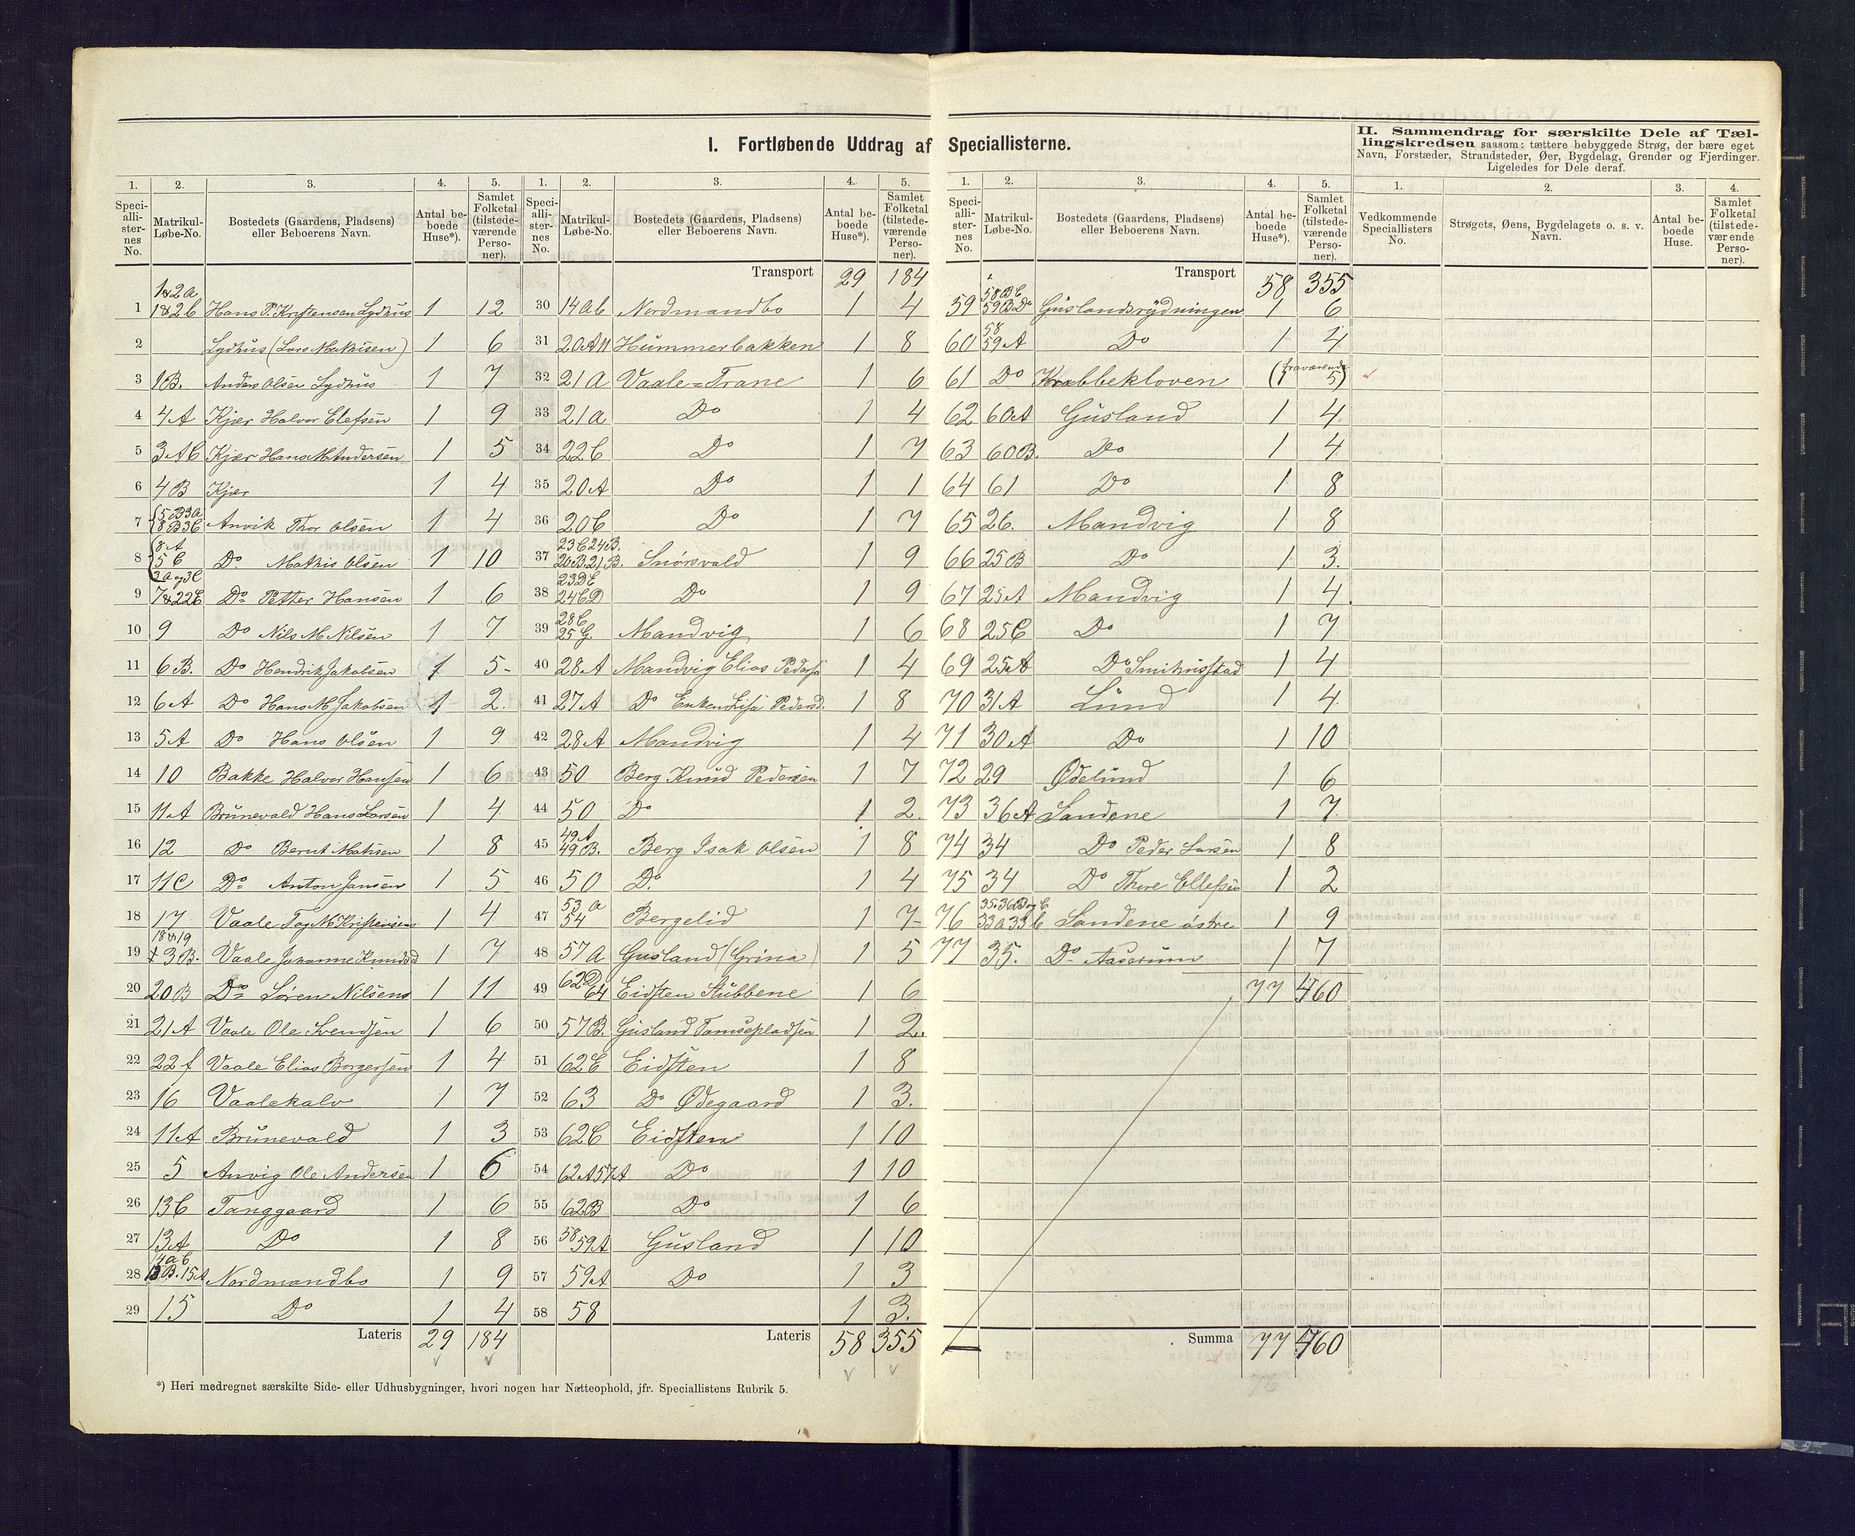 I. Fortløbende Uddrag af Speciallisterne.
II. Sammendrag for særskilte Dele af Tællingskredsen saasom: tættere bebyggede Strøg, der bære eget Navn, Forstæder, Strandsteder, Øer, Bygdelag, Grender og Fjerdinger. Ligeledes for Dele deraf.
1. 2. 3. 4. 5. 1. 2. 3. 4. 5. 1. 2. 3. 4. 5. 1. 2. 3. 4.
Speciallisternes No. Matrikul-Løbe-No. Bostedets (Gaardens, Pladsens) eller Beboerens Navn. Antal beboede Huse*). Samlet Folketal (tilstedeværende Personer).
1 1&2a 1&2b Hans P. Kristensen Lydhus 1 12
2 Lydhus (Lars Mathisen) 1 6
3 1B. Anders Olsen Lydhus 1 7
4 4A Kjær Halvor Elefsen 1 9
5 3AC Kjær Hans M Andersen 1 5
6 4B Kjær 1 4
7 5B3a 8B3C Anvik Thor Olsen 1 4
8 8A 5C Do Mathis Olsen 1 10
9 3a og 3C 7&22E Do Petter Hansen 1 6
10 9 Do Nils M Nilsen 1 7
11 6B. Do Hendrik Jakobsen 1 5
12 6A Do Hans M Jakobsen 1 2
13 5A Do Hans Olsen 1 9
14 10 Bakke Halvor Hansen 1 6
15 11A Brunevald Hans Larsen 1 4
16 12 Do Bernt Matisen 1 8
17 11C Do Anton Jansen 1 5
18 17 Vaale Tog M Kristensen 1 4
19 18&19 3B. Vaale Johanne Knudsd 1 7
20 20B Do Søren Nilsens 1 11
21 21A Vaale Ole Svendsen 1 6
22 22f Vaale Elias Borgersen 1 4
23 16 Vaalekalv 1 7
24 11A Brunevald 1 3
25 5 Anvig Ole Andersen 1 6
26 13C Tanggaard 1 6
27 13A Do 1 8
28 14ab 13B. 15A Nordmandbo 1 9
29 15 Do 1 4
Lateris 29 184
Speciallisternes No. Matrikul-Løbe-No. Bostedets (Gaardens, Pladsens) eller Beboerens Navn. Antal beboede Huse*). Samlet Folketal (tilstedeværende Personer).
Transport 29 184
30 14ab Nordmandbo 1 4
31 20A11 Hummerbakken 1 8
32 21A Vaale=Trane 1 6
33 21a Do 1 4
34 22C Do 1 7
35 20A Do 1 1
36 20C Do 1 7
37 23C24B. 20B21B. Snørsvald 1 9
38 23DE 24CD Do 1 9
39 28C 25G. Mandvig 1 6
40 28A Mandvig Elias Peders 1 4
41 27A Do Enken Lisa Pedersd. 1 8
42 28A Mandvig 1 4
43 50 Berg Knud Pedersen 1 7
44 50 Do 1 2
45 49A 49B. Berg Isak Olsen 1 8
46 50 Do. 1 4
47 53a 54 Bergelid 1 7
48 57A Gusland (Grina) 1 5
49 62D 64 Eidsten Stubbene 1 6
50 57B. Gusland Tamsepladsen 1 2
51 62E Eidsten 1 8
52 63 Do Ødegaard 1 3
53 62C Eidsten 1 10
54 62A57A Do 1 10
55 62B Do 1 6
56 58 59A Gusland 1 10
57 59A Do 1 3
58 58 1 3
Lateris 58 355
Speciallisternes No. Matrikul-Løbe-No. Bostedets (Gaardens, Pladsens) eller Beboerens Navn. Antal beboede Huse*). Samlet Folketal (tilstedeværende Personer).
Transport 58 355
59 58BC 59BD Guslandsrydningen 1 6
60 58 59A Do 1 4
61 Do Krabbekloven (fraværende 1 5)
62 60A Gusland 1 4
63 60B. Do 1 4
64 61 Do 1 8
65 26. Mandvig 1 8
66 25B Do 1 3
67 25A Mandvig 1 4
68 25C Do 1 7
69 25A Do Smihusstad 1 4
70 31A Lund 1 4
71 30A Do 1 10
72 29 Ødelund 1 6
73 36A Sandene 1 7
74 34 Do Peder Larsen 1 8
75 34 Do Thore Ellefsen 1 2
76 35.36B og C 33a33b Sandene østre 1 9
77 35. Do Aaserum 1 7
77 460
Summa 77 460
76
Vedkommende Speciallisters No. Strøgets, Øens, Bygdelagets o. s. v. Navn. Antal beboede Huse. Samlet Folketal (tilstedeværende Personer).
*) Heri medregnet særskilte Side- eller Udhusbygninger, hvori nogen har Natteophold, jfr. Speciallistens Rubrik 5.